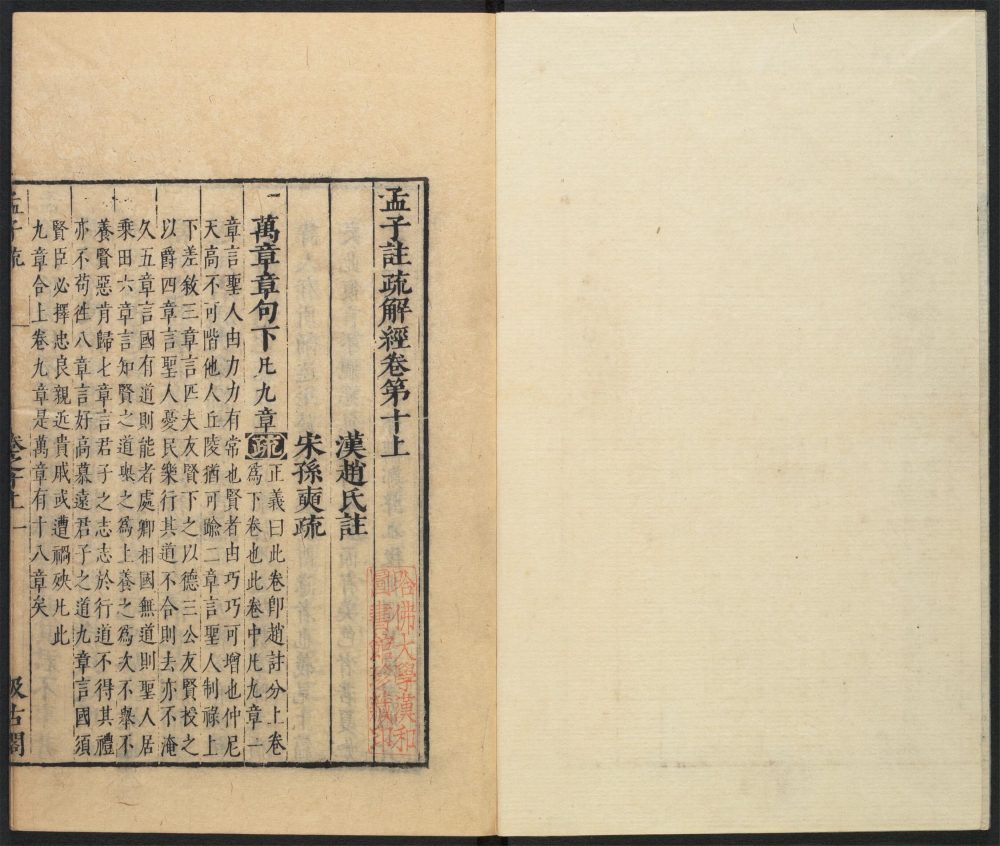 孟子註疏解經卷第十上
漢趙氏註
宋孫奭疏
萬章章句下凡九章疏正義曰此卷卽趙註分上卷
爲下卷也此卷中凡九章一
章言聖人由力力有常也賢者由巧巧可增也仲尼
天高不可階他人丘陵猶可踰二章言聖人制祿上
下差敘三章言匹夫友賢下之以德三公友賢授之
以爵四章言聖人憂民樂行其道不合則去亦不淹
久五章言國有道則能者處卿相國無道則聖人居
乘田六章言知賢之道舉之爲上養之爲次不舉不
養賢惡肯歸七章言君子之志志於行道不得其禮
亦不苟往八章言好高慕遠君子之道九章言國須
賢臣必擇忠良親近貴戚或遭禍殃凡此
九章合上卷九章是萬章有十八章矣
孟子疏 卷之十上 一 汲古閣
哈佛大學漢和
圖書館珍藏印